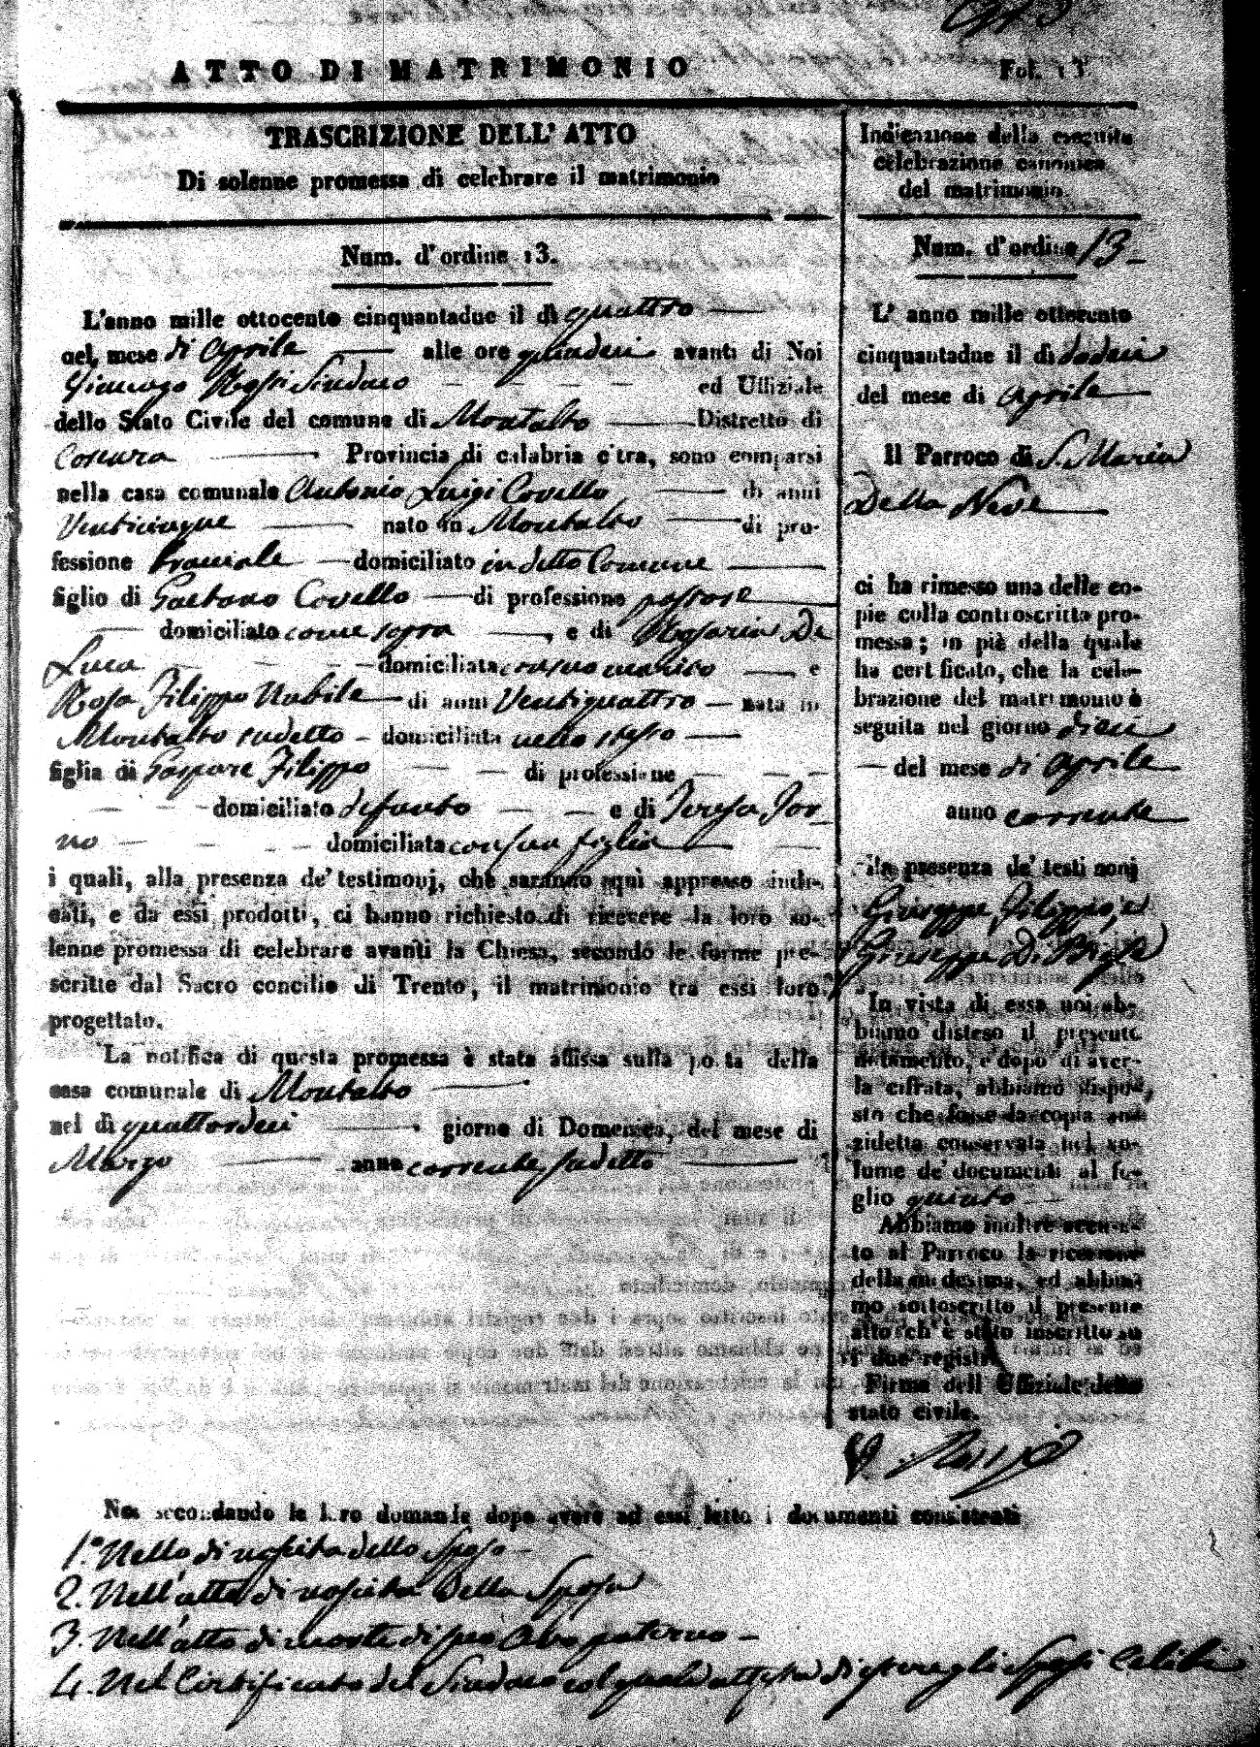 ATTO DI MATRIMONIO
Fol. 13
TRASCRIZIONE DELL' ATTO
Di solenne promessa di celebrare il matrimonio
Num. d'ordine 13.
L'anno mille ottocento cinquantadue il dì quattro
nel mese di Aprile alle ore quindeci avanti di Noi
Rossi Sindaco ed Uffiziale
dello Stato Civile del comune di Montalto Distretto di
Cosenza Provincia di calabria citra, sono comparsi
nella casa comunale Antonio Luigi Covello di anni
Venticinque nato in Montalto di pro-
fessione braciale domiciliato in detto Comune
figlio di Gaetano Covello di professione pastore
domiciliato come sopra e di Rosaria De
Luca domiciliata con suo marito e
Rosa Filippo Nubile di anni Ventiquattro nata in
Montalto sudetto domiciliata nello stesso
figlia di Gaspare Filippo di professione
domiciliato defunto e di Teresa Tor-
no domiciliata con sua figlia
i quali, alla presenza de' testimonj, che saranno qui appresso indi-
cati, e da essi prodotti, ci hanno richiesto di ricevere la loro so-
lenne promessa di celebrare avanti la Chiesa, secondo le forme pre-
scritte dal Sacro concilio di Trento, il matrimonio tra essi loro
progettato.
La notifica di questa promessa è stata affissa sulla porta della
casa comunale di Montalto
nel dì quattordeci giorno di Domenica, del mese di
Marzo anno corrente sudetto
Indicazione della eseguita
celebrazione canonica
del matrimonio.
Num. d'ordine 13
L' anno mille ottocento
cinquantadue il dì dodeci
del mese di Aprile
Il Parroco di S. Maria
Della Neve
ci ha rimesso una delle co-
pie colla controscritta pro-
messa; in piè della quale
ha certificato, che la cele-
brazione del matrimonio è
seguita nel giorno dieci
del mese di Aprile
anno corrente
alla presenza de' testimonj
Giuseppe Filippo, e
Giuseppe Di Biase
In vista di essa noi ab-
biamo disteso il presente
notamento, e dopo di aver-
la cifrata, abbiamo dispo-
sto che fosse la copia anzi
zidetta conservata nel vo-
lume de' documenti al fo-
glio quinto
Abbiamo inoltre accusa-
to al Parroco la ricezione
della medesima, ed abbia-
mo sottoscritto il presente
atto ch' è stato inscritto su
i due registri
Firma dell Uffiziale dello
stato civile.
Noi secondando le loro domande dopo avere ad essi letto i documenti consistenti
1.° Nello di nascita dello Sposo
2. Nell'atto di nascita Della Sposa
3. Nell'atto di morte di suo Avo paterno
4. Nel Certificato del Sindaco col quale attesta di essere gli Sposi Celibi